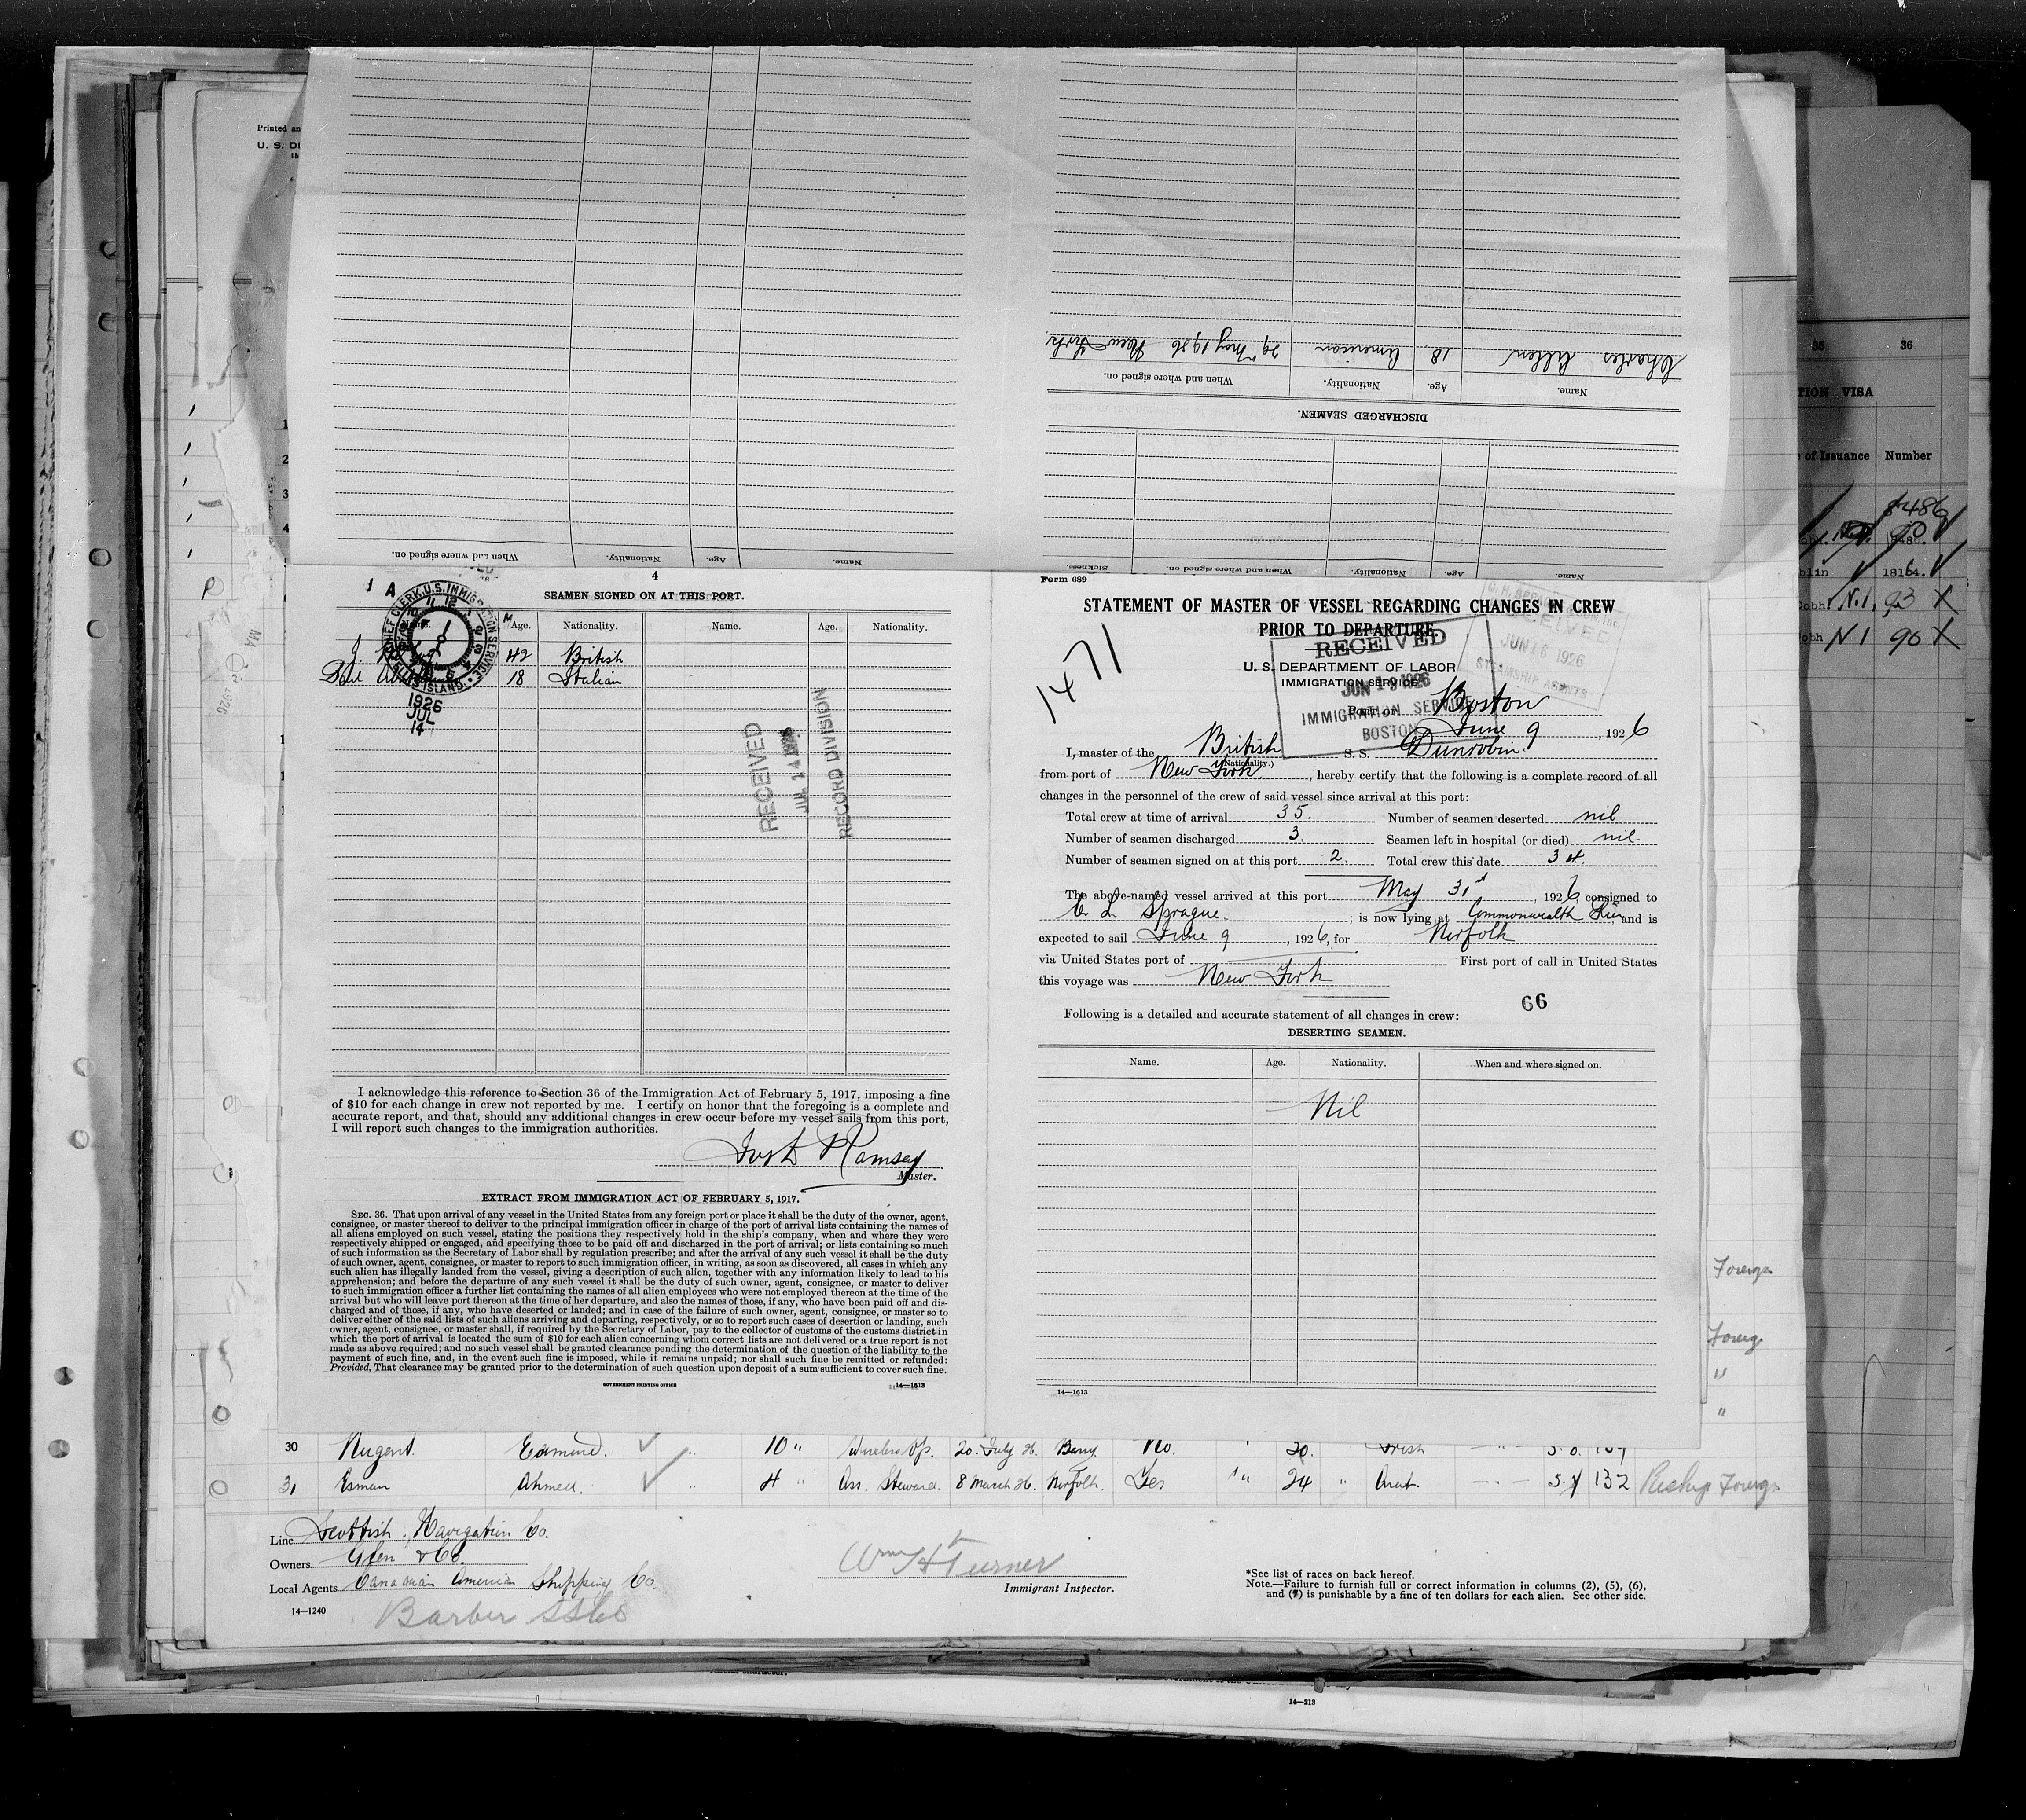 Printed an
U. S. D
DISCHARGED SEAMEN.
Name. Age. Nationality. When and where signed on.
Charles Allen 18 American 29th May 1926 New York
Name. Age. Nationality. When and where signed on.
Name. Age. Nationality. When and where signed on. Sickness.
35 36
TION VISA
e of Issuance Number
8486
90
lin 18164.
N.1. 93 X
obh N 1 90 X
4
SEAMEN SIGNED ON AT THIS PORT.
Age. Nationality. Name. Age. Nationality.
42 British
18 Italian
CHIEF CLERK, U.S. IMMIGRATION SERVICE
ELLIS ISLAND.
1926
JUL
14
RECEIVED
JUL 14 1926
RECORD DIVISION
I acknowledge this reference to Section 36 of the Immigration Act of February 5, 1917, imposing a fine
of $10 for each change in crew not reported by me. I certify on honor that the foregoing is a complete and
accurate report, and that, should any additional changes in crew occur before my vessel sails from this port,
I will report such changes to the immigration authorities.
Ramsay
Master.
EXTRACT FROM IMMIGRATION ACT OF FEBRUARY 5, 1917.
SEC. 36. That upon arrival of any vessel in the United States from any foreign port or place it shall be the duty of the owner, agent,
consignee, or master thereof to deliver to the principal immigration officer in charge of the port of arrival lists containing the names of
all aliens employed on such vessel, stating the positions they respectively hold in the ship's company, when and where they were
respectively shipped or engaged, and specifying those to be paid off and discharged in the port of arrival; or lists containing so much
of such information as the Secretary of Labor shall by regulation prescribe; and after the arrival of any such vessel it shall be the duty
of such owner, agent, consignee, or master to report to such immigration officer, in writing, as soon as discovered, all cases in which any
such alien has illegally landed from the vessel, giving a description of such alien, together with any information likely to lead to his
apprehension; and before the departure of any such vessel it shall be the duty of such owner, agent, consignee, or master to deliver
to such immigration officer a further list containing the names of all alien employees who were not employed thereon at the time of the
arrival but who will leave port thereon at the time of her departure, and also the names of those, if any, who have been paid off and dis-
charged and of those, if any, who have deserted or landed; and in case of the failure of such owner, agent, consignee, or master so to
deliver either of the said lists of such aliens arriving and departing, respectively, or so to report such cases of desertion or landing, such
owner, agent, consignee, or master shall, if required by the Secretary of Labor, pay to the collector of customs of the customs district in
which the port of arrival is located the sum of $10 for each alien concerning whom correct lists are not delivered or a true report is not
made as above required; and no such vessel shall be granted clearance pending the determination of the question of the liability to the
payment of such fine, and, in the event such fine is imposed, while it remains unpaid; nor shall such fine be remitted or refunded:
Provided, That clearance may be granted prior to the determination of such question upon deposit of a sum sufficient to cover such fine.
GOVERNMENT PRINTING OFFICE 14—1613
Form 689
STATEMENT OF MASTER OF VESSEL REGARDING CHANGES IN CREW
PRIOR TO DEPARTURE.
1471
U. S. DEPARTMENT OF LABOR
IMMIGRATION SERVICE
RECEIVED
JUN 19 1926
IMMIGRATION SERVICE
BOSTON
RECEIVED
JUN 16 1926
STEAMSHIP AGENTS
Port of Boston
June 9, 1926
I, master of the British S. S. Dunrobin.
(Nationality.)
from port of New York, hereby certify that the following is a complete record of all
changes in the personnel of the crew of said vessel since arrival at this port:
Total crew at time of arrival 35. Number of seamen deserted nil
Number of seamen discharged 3. Seamen left in hospital (or died) nil.
Number of seamen signed on at this port 2. Total crew this date 34.
The above-named vessel arrived at this port May 31st, 1926, consigned to
Sprague. ; is now lying at Commonwealth Pier and is
expected to sail June 9, 1926, for Norfolk
via United States port of First port of call in United States
this voyage was New York
66
Following is a detailed and accurate statement of all changes in crew:
DESERTING SEAMEN.
Name. Age. Nationality. When and where signed on.
Nil
14—1613
Foreign
Foreig
"
"
30 Nugent. Edmund. 10 " Wireless Op. 20 July 26. Barry. No. " 20. Irish
31 Esman Ahmed. " 4 " Ass. Steward. 8 March 26. Norfolk. Yes " 24 " Arab. 5.7 132 Reship Foreign
Line Scottish Navigation Co.
Owners Glen & Co.
Local Agents Canadian American Shipping Co.
14—1240
Barber SS Co
Wm H Turner
Immigrant Inspector.
*See list of races on back hereof.
Note.—Failure to furnish full or correct information in columns (2), (5), (6),
and (7) is punishable by a fine of ten dollars for each alien. See other side.
14—213